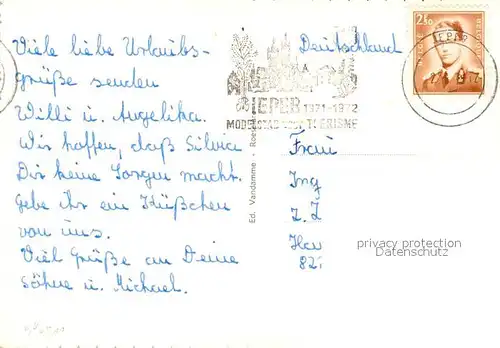 Viele liebe Urlaubs-
grüße senden
Willi u. Angelika.
Wir hoffen, daß Silvia
Dir keine Sorgen macht.
Gebe ihr ein Küßchen
von uns.
Viel Grüße an Deine
Söhne u. Michael.
Ed. Vandamme - Roe
IEPER 1971-1972
MODELSTAD TOERISME
Deutschland
IEPER
2,50
Frau
Ing
Z. Z
Han
82
privacy protection
Datenschutz